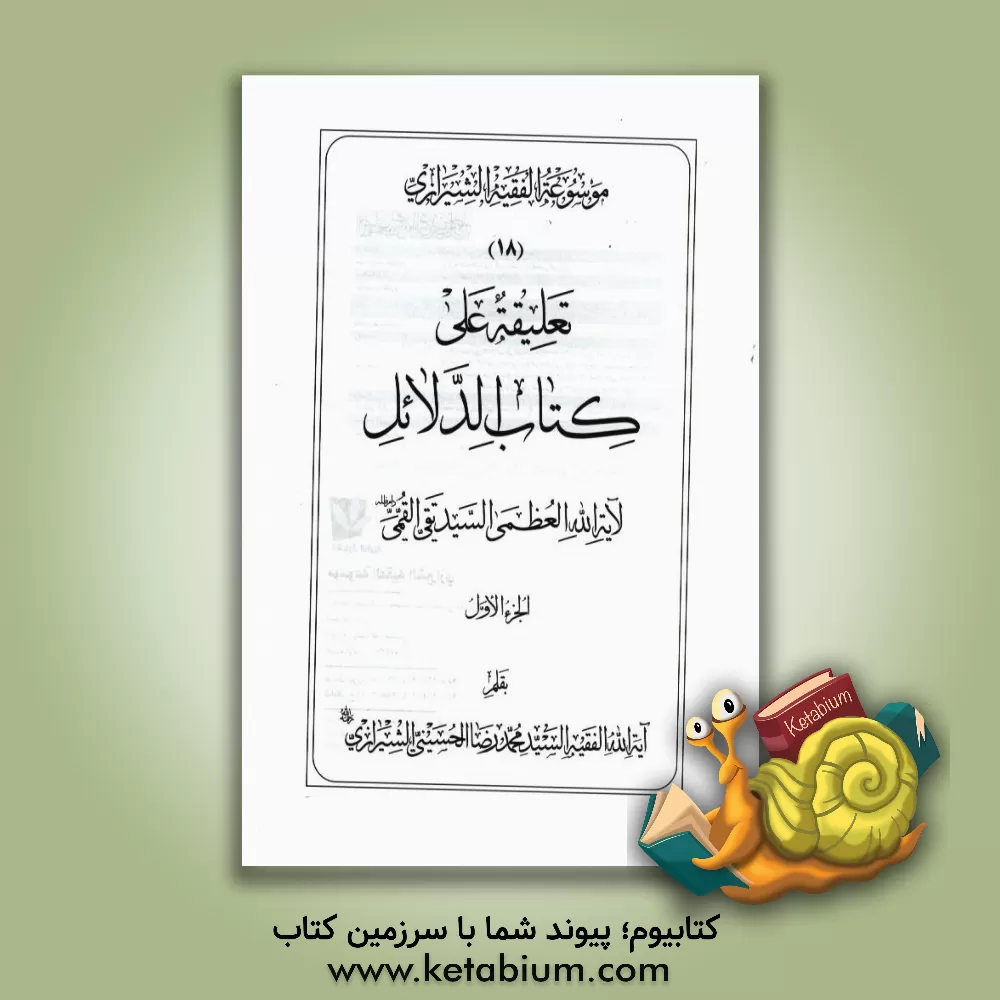 مَوْسُوعَةُ الفَقِيهِ الشِّيرَازِيِّ
(١٨)
تَعْلِيقَةٌ عَلَىٰ
كِتَابِ الدَّلَائِلِ
لآيَةِ اللهِ العُظْمَىٰ السَّيِّد تَقِيّ القُمِّيّ دام ظله
الجزءُ الأَوَّلُ
بِقَلَمِ
آيَةِ اللهِ الفَقِيهِ السَّيِّد مُحَمَّد رِضَا الحُسَيْنِيّ الشِّيرَازِيّ
Ketabium
کتابیوم؛ پیوند شما با سرزمین کتاب
www.ketabium.com